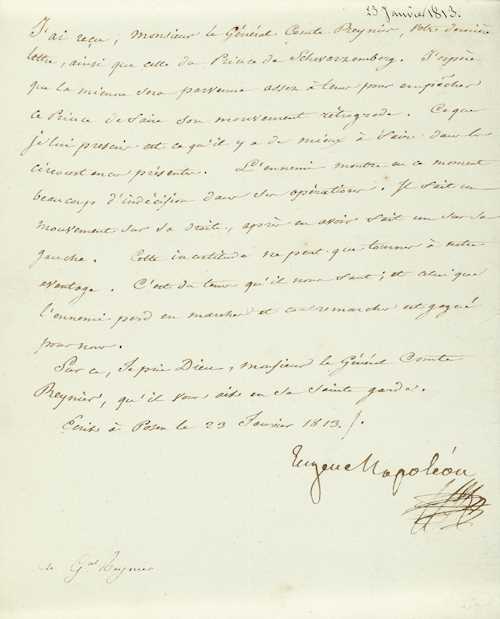 23 Janvier 1813.
J'ai reçu, Monsieur le Général Comte Reynier, votre dernière
lettre, ainsi que celle du Prince de Schwarzemberg. J'espère
que la mienne sera parvenue assez à tems pour empêcher
ce Prince de faire son mouvement rétrograde. Ce que
je lui prescris est ce qu'il y a de mieux à faire dans les
circonstances présentes. L'ennemi montre en ce moment
beaucoup d'indécision dans ses opérations. Il fait un
mouvement sur sa droite, après en avoir fait un sur sa
gauche. Cette incertitude ne peut que tourner à notre
avantage. C'est du tems qu'il nous faut; et celui que
l'ennemi perd en marches et contremarches est gagné
pour nous.
Sur ce, Je prie Dieu, monsieur le Général Comte
Reynier, qu'il vous ait en sa Sainte garde.
Écrit à Posen le 23 Janvier 1813.
Eugene Napoléon
Gal Reynier